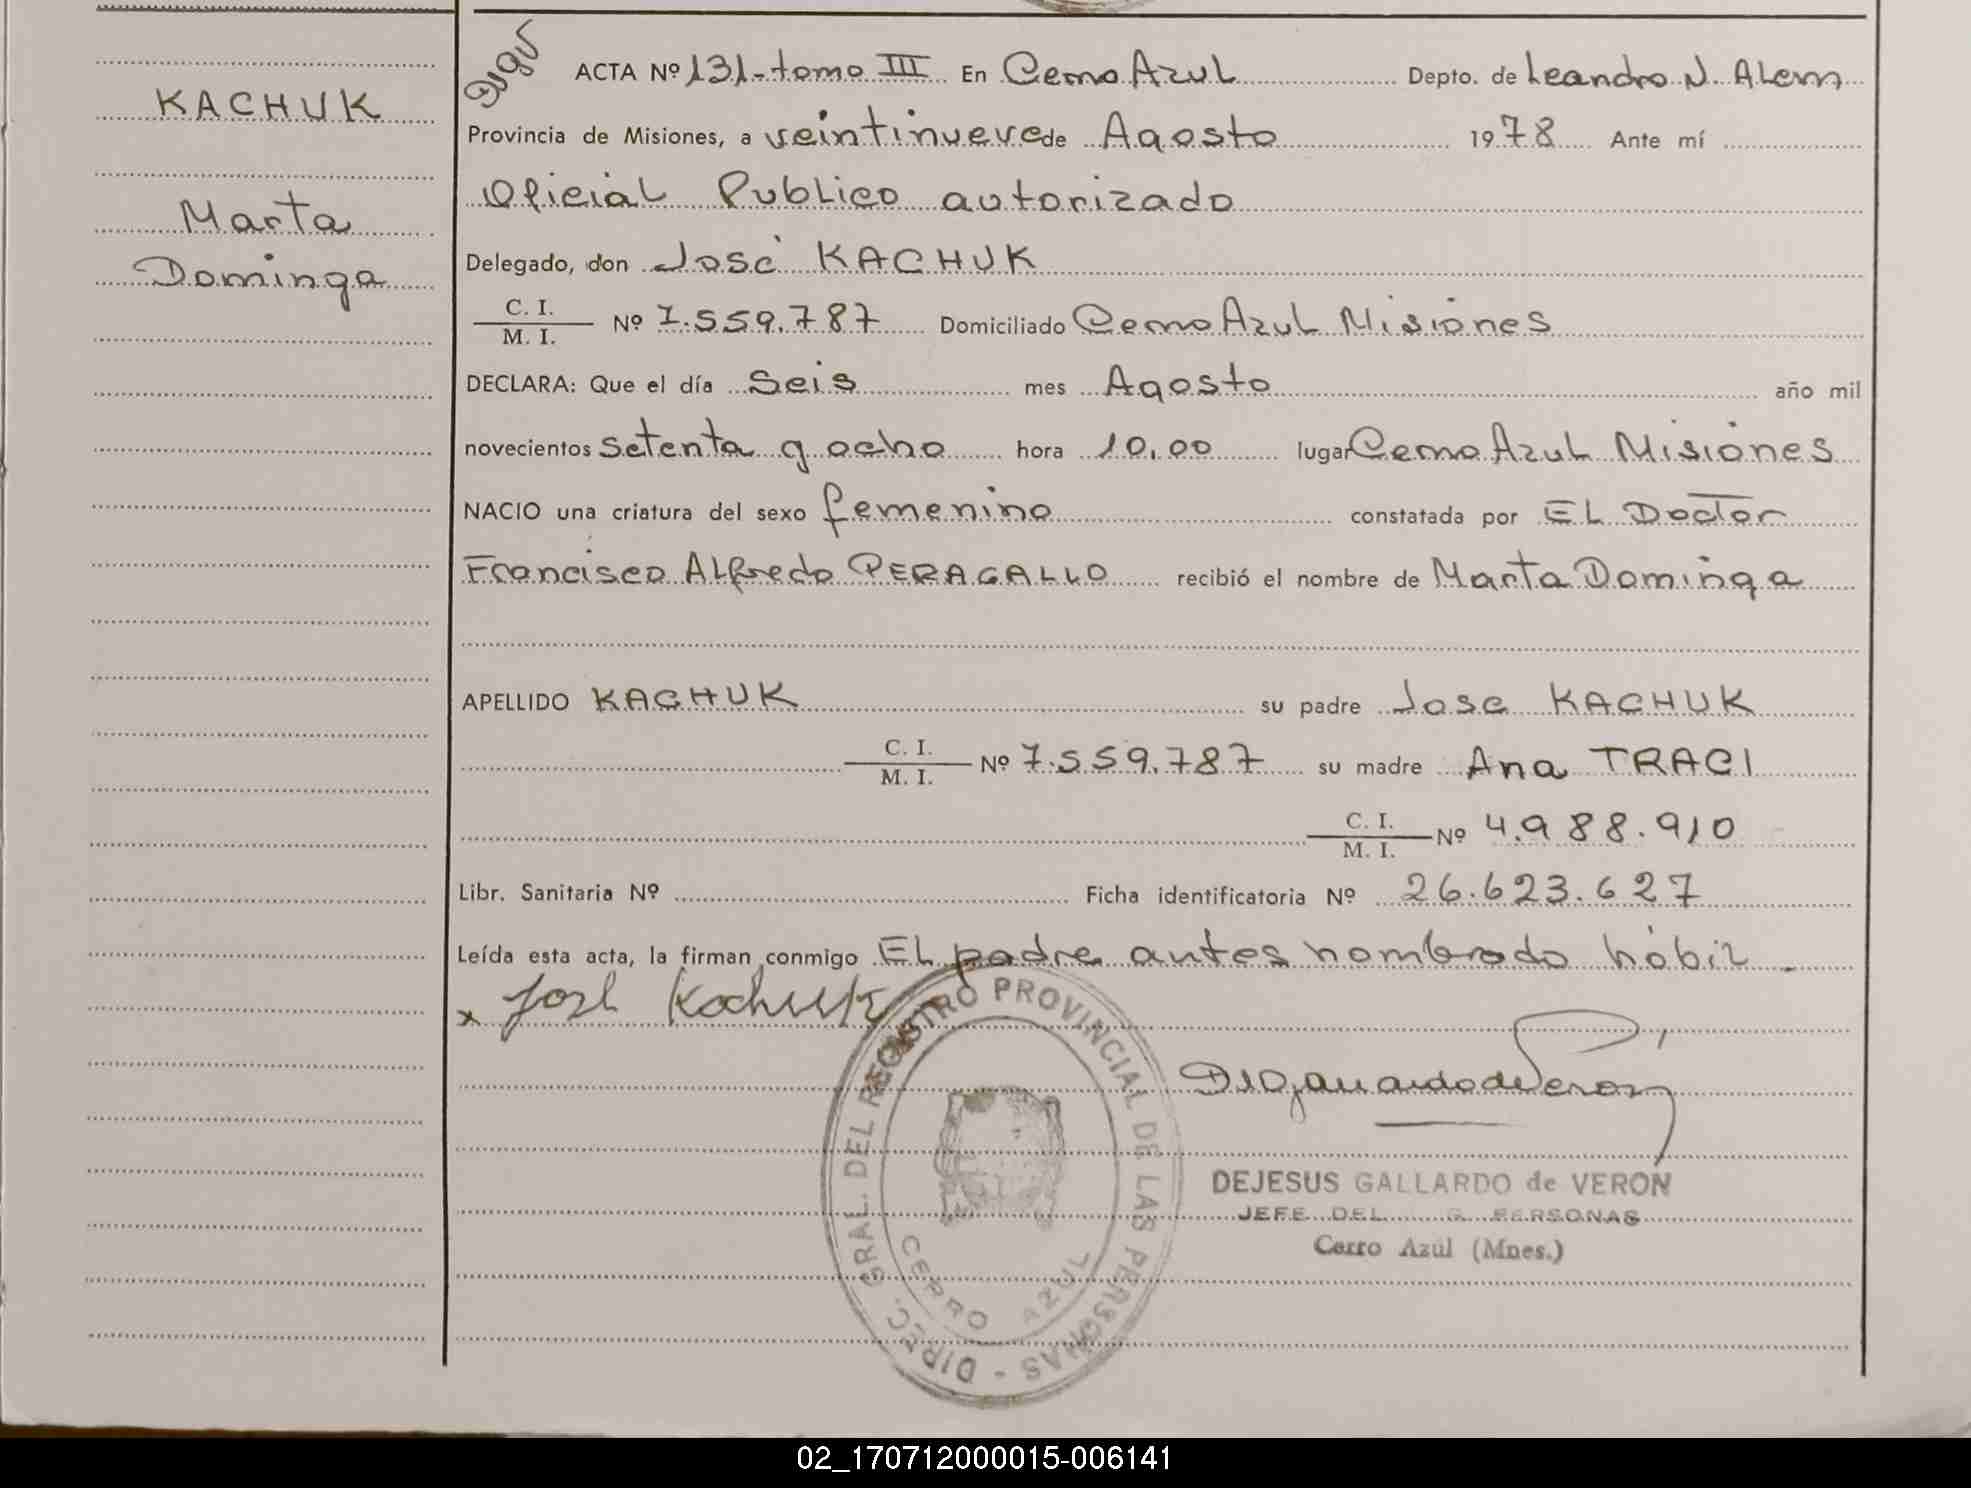 KACHUK
Marta
Dominga
ACTA Nº 131-tomo III En Cerro Azul Depto. de Leandro N. Alem
Provincia de Misiones, a veintinueve de Agosto 1978 Ante mí
Oficial Publico autorizado
Delegado, don José KACHUK
C. I.
M. I. Nº 7.559.787 Domiciliado Cerro Azul Misiones
DECLARA: Que el día Seis mes Agosto año mil
novecientos setenta y ocho hora 10,00 lugar Cerro Azul Misiones
NACIO una criatura del sexo femenino constatada por EL Doctor
Francisco Alfredo PERAGALLO recibió el nombre de Marta Dominga
APELLIDO KACHUK su padre Jose KACHUK
C. I.
M. I. Nº 7.559.787 su madre Ana TRACI
C. I.
M. I. Nº 4.988.910
Libr. Sanitaria Nº Ficha identificatoria Nº 26.623.627
Leída esta acta, la firman conmigo El padre antes nombrado hábil.
x José Kachuk
DIREC. GRAL. DEL REGISTRO PROVINCIAL DE LAS PERSONAS -
CERRO AZUL
DEJESUS GALLARDO de VERON
JEFE DEL PERSONAS
Cerro Azul (Mnes.)
02_170712000015-006141